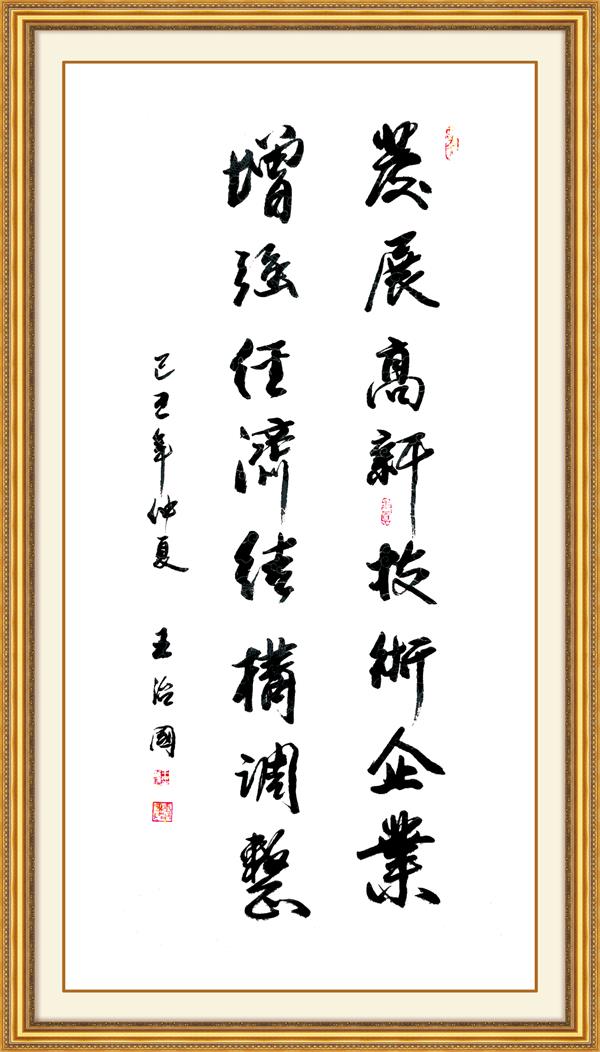 發展高新技術企業
增强经濟结構调整
己丑年仲夏 王治國